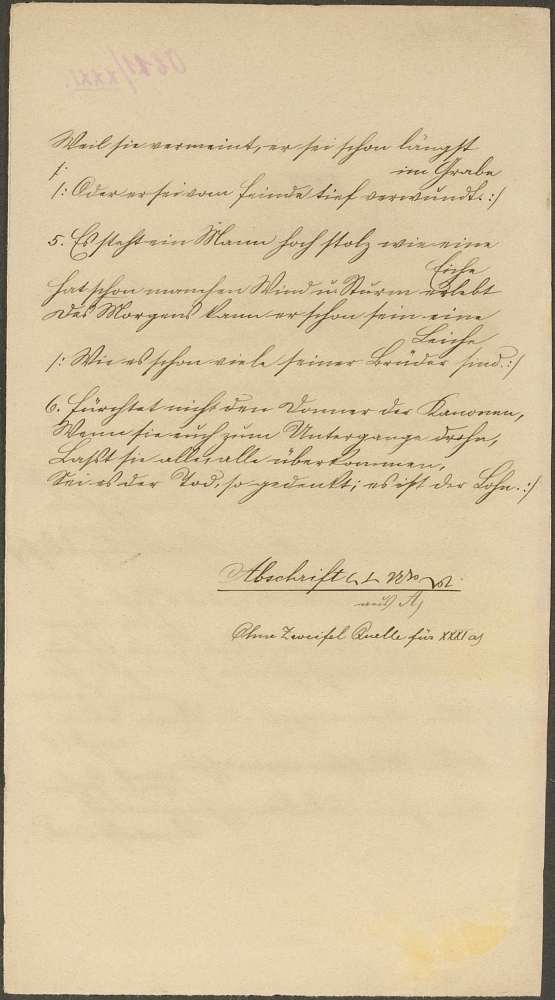 Weil sie vermeint, er sei schon längst
im Grabe
/:
/: Oder er sei vom Feinde tief verwundt. :/
5. Es steht ein Mann hoch stolz wie eine
Eiche
Hat schon manchen Wind u. Sturm erlebt
Des Morgens kann er schon sein eine
Leiche
/: Wie es schon viele seiner Brüder sind. :/
6. Fürchtet nicht den Donner der Kanonen,
Wenn sie euch zum Untergange drohn,
Laßt sie alle, alle überkommen,
Sei es der Tod, so gedenkt; es ist der Lohn. :/
Abschrift
aus A)
Ohne Zweifel Quelle für XXXI a)